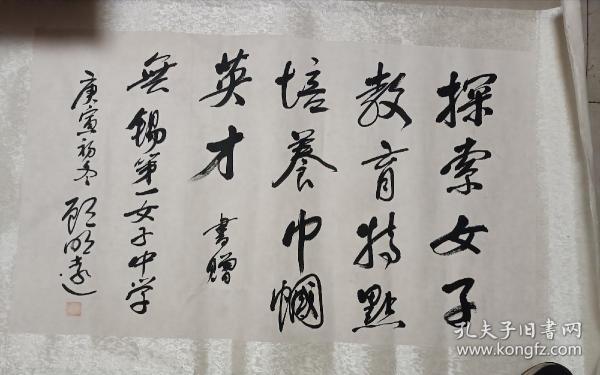 探索女子
教育特點
培養巾幗
英才 書贈
無錫第一女子中学
庚寅初冬 顾明远
孔夫子旧书网
www.kongfz.com